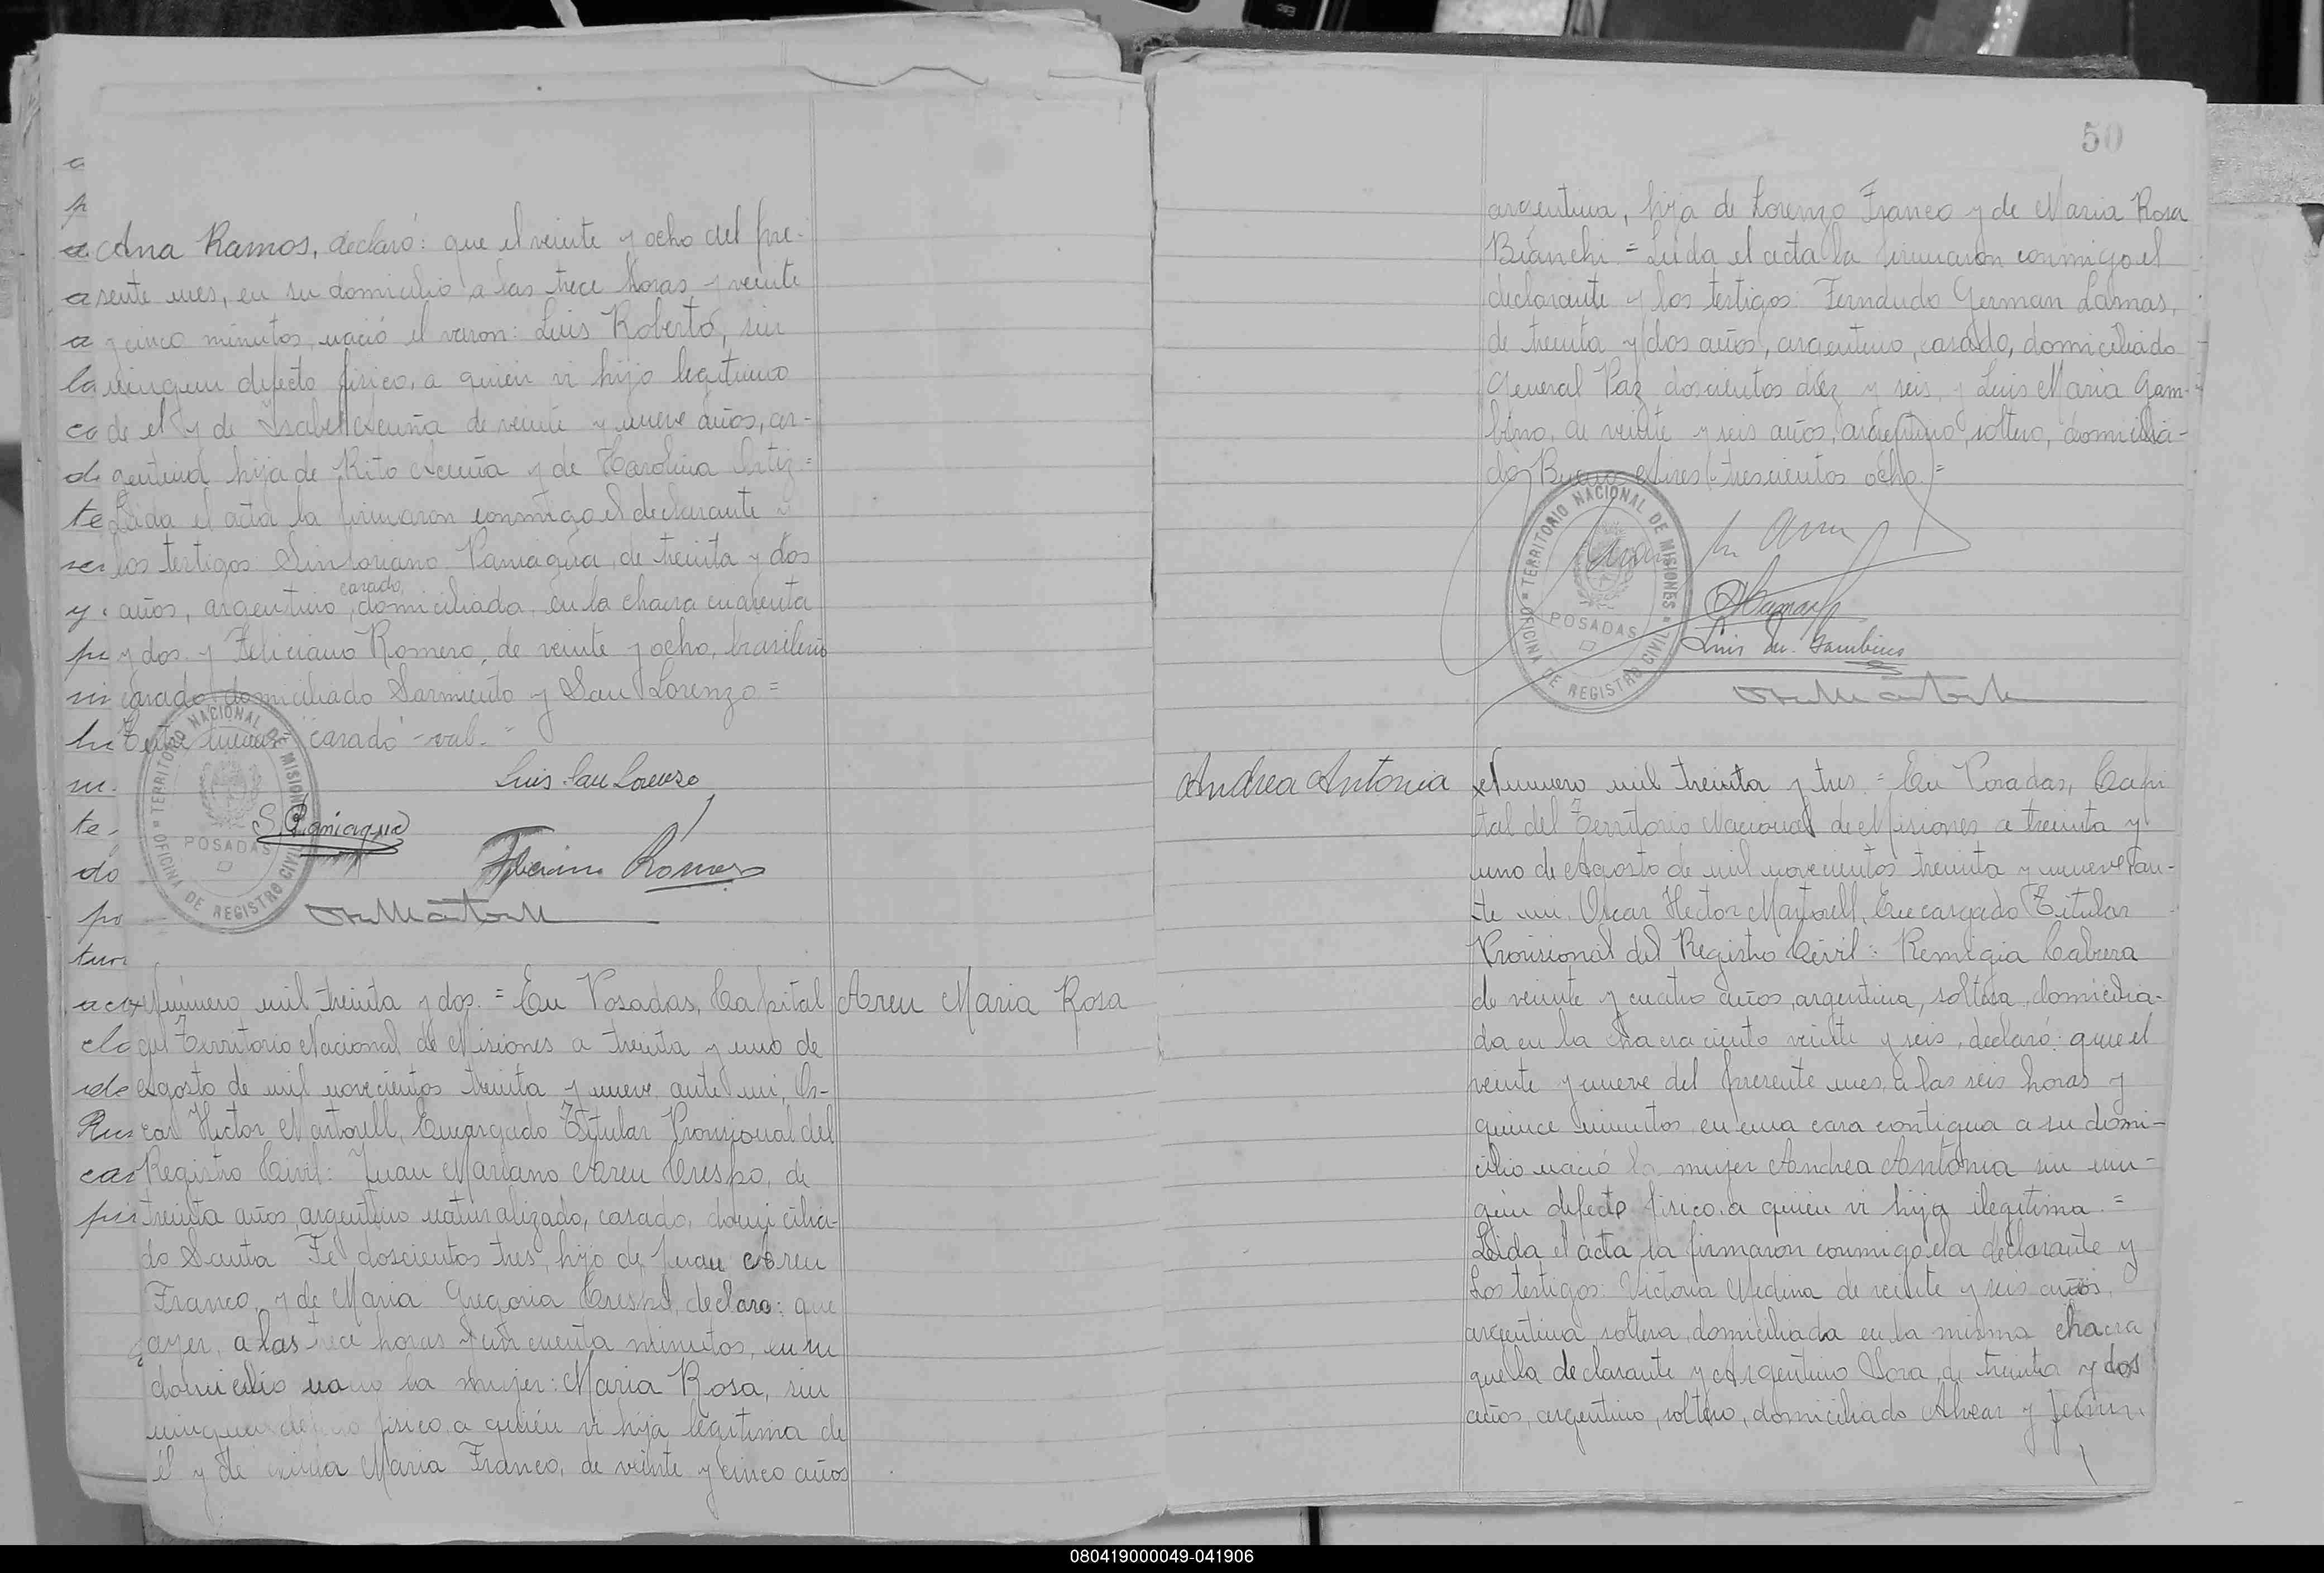 Ana Ramos, declaró: que el veinte y ocho del pre-
sente mes, en su domicilio a las trece horas y veinte
y cinco minutos, nació el varon: Luis Roberto, sin
ningun defecto fisico, a quien vi hijo legitimo
de el y de Isabel Acuña de veinte y nueve años, ar-
gentina hija de Rito Acuña y de Carolina Ortiz =
Leida el acta la firmaron conmigo el declarante y
los testigos: Sinforiano Paniagua, de treinta y dos
casado,
años, argentino, domiciliado, en la chacra cuarenta
y dos y Feliciano Romero, de veinte y ocho, brasilero
casado domiciliado Sarmiento y San Lorenzo =
casado - val.
Luis San Lorenzo
S. Paniagua
Romero
TERRITORIO NACIONAL DE MISIONES
POSADAS
OFICINA DE REGISTRO CIVIL
Número mil treinta y dos. = En Posadas, Capital
Abreu Maria Rosa
del Territorio Nacional de Misiones a treinta y uno de
Agosto de mil novecientos treinta y nueve ante mi, Os-
car Hector Martorell, Encargado Titular Provisional del
Registro Civil: Juan Mariano Abreu Crespo, de
treinta años, argentino naturalizado, casado, domicilia-
do Santa Fé doscientos tres, hijo de Juan Abreu
Franco, y de Maria Gregoria Crespo, declaro: que
ayer, a las trece horas y cincuenta minutos, en su
domicilio nacio la mujer: Maria Rosa, sin
ningun defecto fisico a quién vi hija legitima de
él y de Maria Franco, de veinte y cinco años
50
argentina, hija de Lorenzo Franco y de Maria Rosa
Bianchi = Leida el acta la firmaron conmigo el
declarante y los testigos: German Lamas,
de treinta y dos años, argentino, casado, domiciliado
General Paz doscientos diéz y seis, y Luis Maria Gam-
bino, de veinte y seis años, argentino, soltero, domicilia-
do Buenos Aires trescientos ocho =
TERRITORIO NACIONAL DE MISIONES
POSADAS
OFICINA DE REGISTRO CIVIL
Luis M. Gambino
Andrea Antonia
Número mil treinta y tres. = En Posadas, Capi
tal del Territorio Nacional de Misiones a treinta y
uno de Agosto de mil novecientos treinta y nueve an-
te mi, Oscar Hector Martorell, Encargado Titular
Provisional del Registro Civil: Remigia Cabrera
de veinte y cuatro años, argentina, soltera, domicilia-
da en la chacra ciento veinte y seis, declaró: que el
veinte y nueve del presente mes, a las seis horas y
quince minutos, en una casa contigua a su domi-
cilio nació la mujer Andrea Antonia sin nin-
gún defecto fisico, a quien vi hija ilegitima. =
Leida el acta la firmaron conmigo la declarante y
los testigos: Victoria Medina de veinte y seis años,
argentina, soltera, domiciliada en la misma chacra
que la declarante y Argentino Sosa, de treinta y dos
años, argentino, soltero, domiciliado Alvear y Junin
080419000049-041906